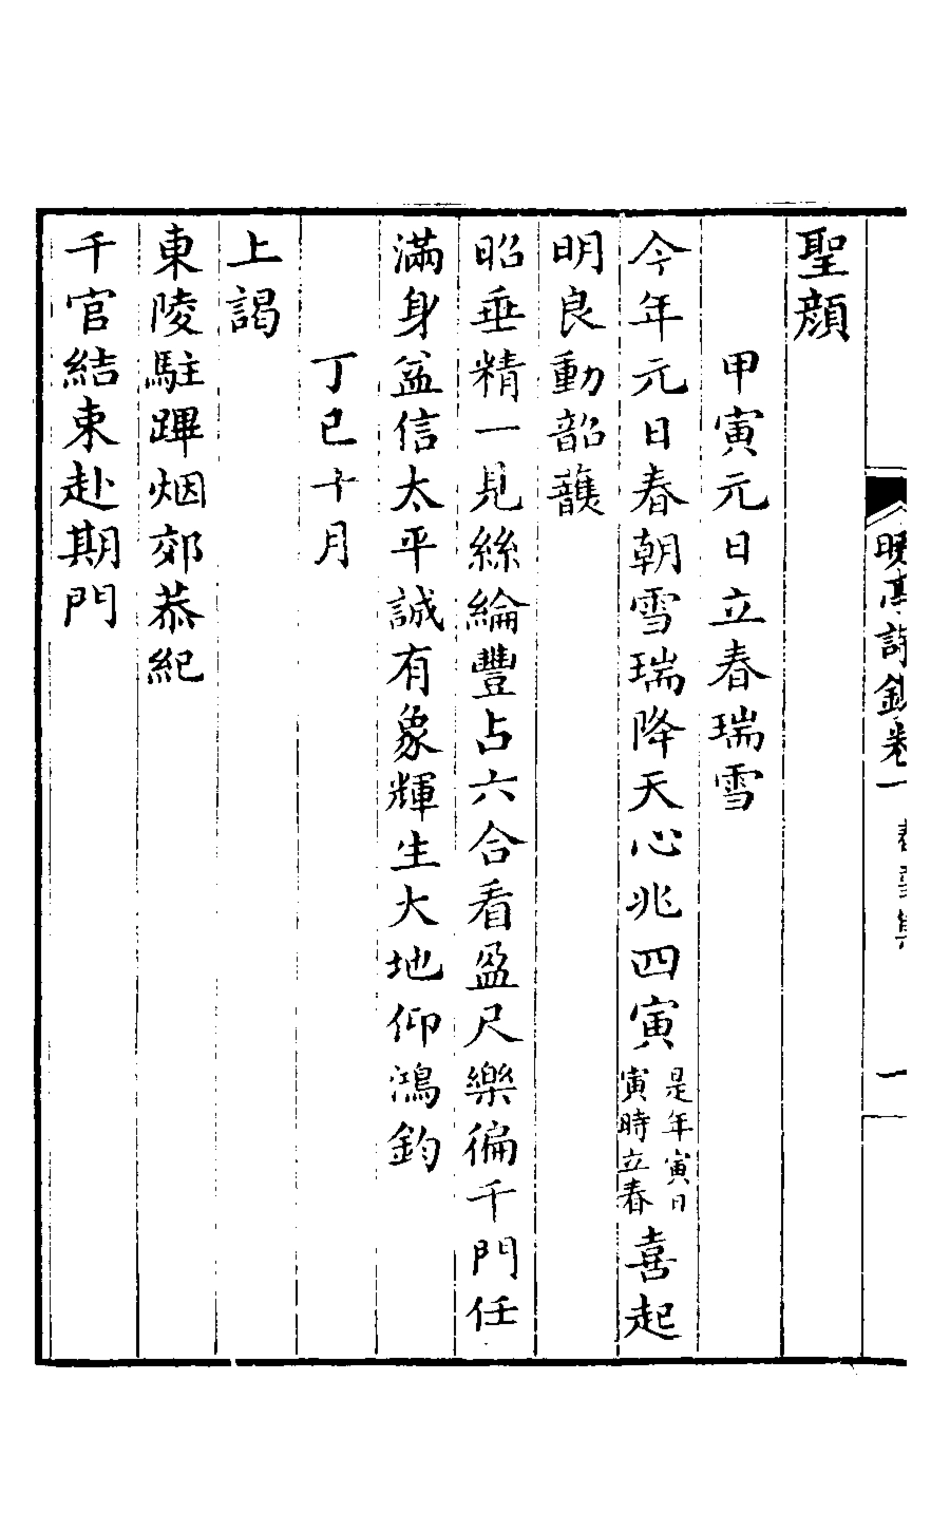 暁亭詩鈔卷一
一
聖顔
甲寅元日立春瑞雪
今年元日春朝雪瑞降天心兆四寅是年寅日寅時立春喜起
明良動韶頀
昭垂精一見絲綸豐占六合看盈尺樂徧千門任
滿身益信太平誠有象輝生大地仰鴻鈞
丁巳十月
上謁
東陵駐蹕烟郊恭紀
千官結束赴期門